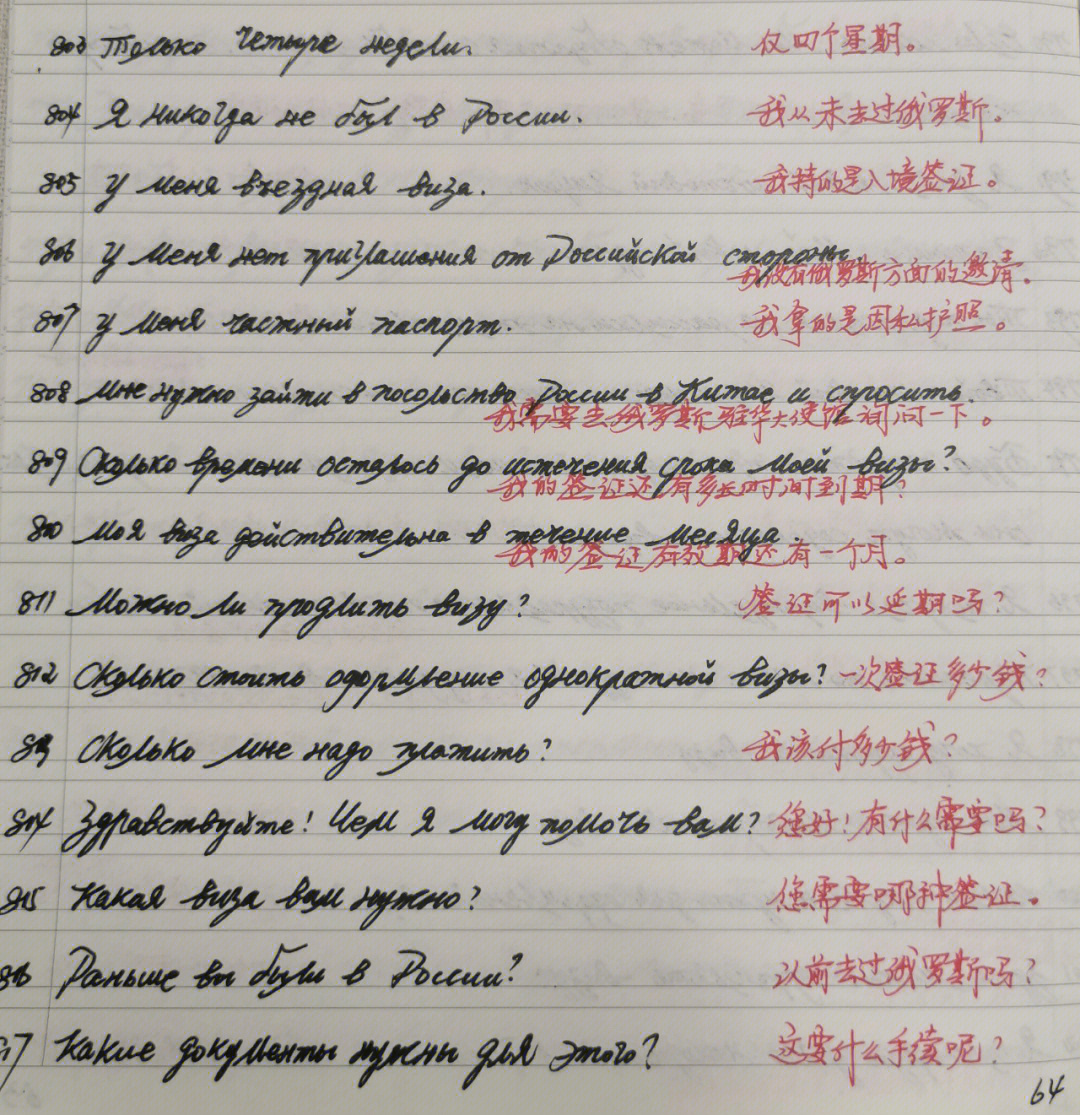 803 Только четыре недели. 仅四个星期。
804 Я никогда не был в России. 我从未去过俄罗斯。
805 У меня въездная виза. 我持的是入境签证。
806 У меня нет приглашения от Российской стороны 我没有俄罗斯方面的邀请。
807 У меня частный паспорт. 我拿的是因私护照。
808 Мне нужно зайти в посольство России в Китае и спросить. 我需要去俄罗斯驻华大使馆询问一下。
809 Сколько времени осталось до истечения срока моей визы? 我的签证还有多长时间到期?
810 Моя виза действительна в течение месяца. 我的签证有效期还有一个月。
811 Можно ли продлить визу? 签证可以延期吗?
812 Сколько стоить оформление однократной визы? 一次签证多少钱?
813 Сколько мне надо платить? 我该付多少钱?
814 Здравствуйте! Чем я могу помочь вам? 您好!有什么需要吗?
815 Какая виза вам нужно? 您需要哪种签证。
816 Раньше вы были в России? 以前去过俄罗斯吗?
17 Какие документы нужны для этого? 这要什么手续呢?
64